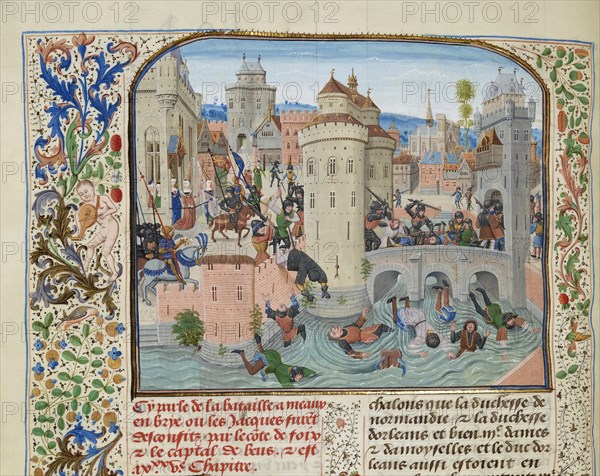 PHOTO12
Cy parle de la bataille a meaux
en brye ou les Jacques furēt
descōfits. par le cōte de foix
& le capital de beus. & est
Chapitre.
chalons que la duchesse de
normandie. & la duchesse
dorleans et bien dames
& damoyselles et le duc dor
leans aussi estoient en